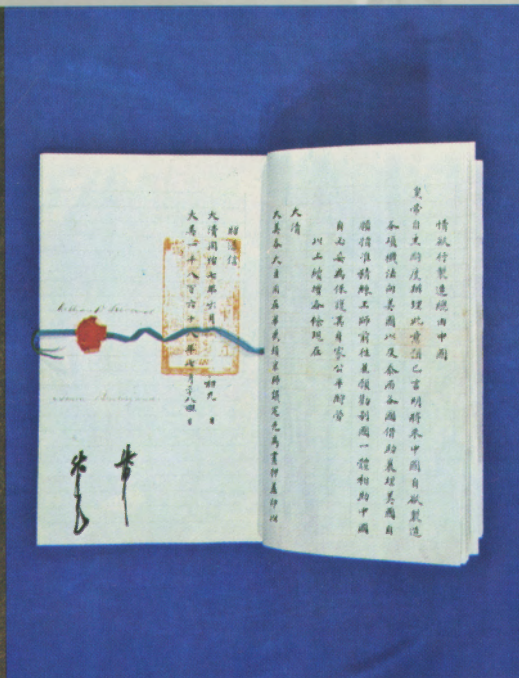 情欲行製造總由中國
皇帝自主酌度辦理此意預已言明將來中國自欲製造
各項機法向美國以及泰西各國借助襄理美國自
願指准精練工師前往並願勸別國一體相助中國
自必妥為保護其身家公平酬勞
以上續增各條現在
大清
大美各大臣同在華盛頓京師議定先為畫押蓋印以
昭憑信
大清同治七年六月初九日
大美一千八百六十八年七月二十八日